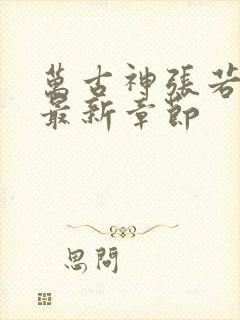 萬古神張若
最新章節
思問